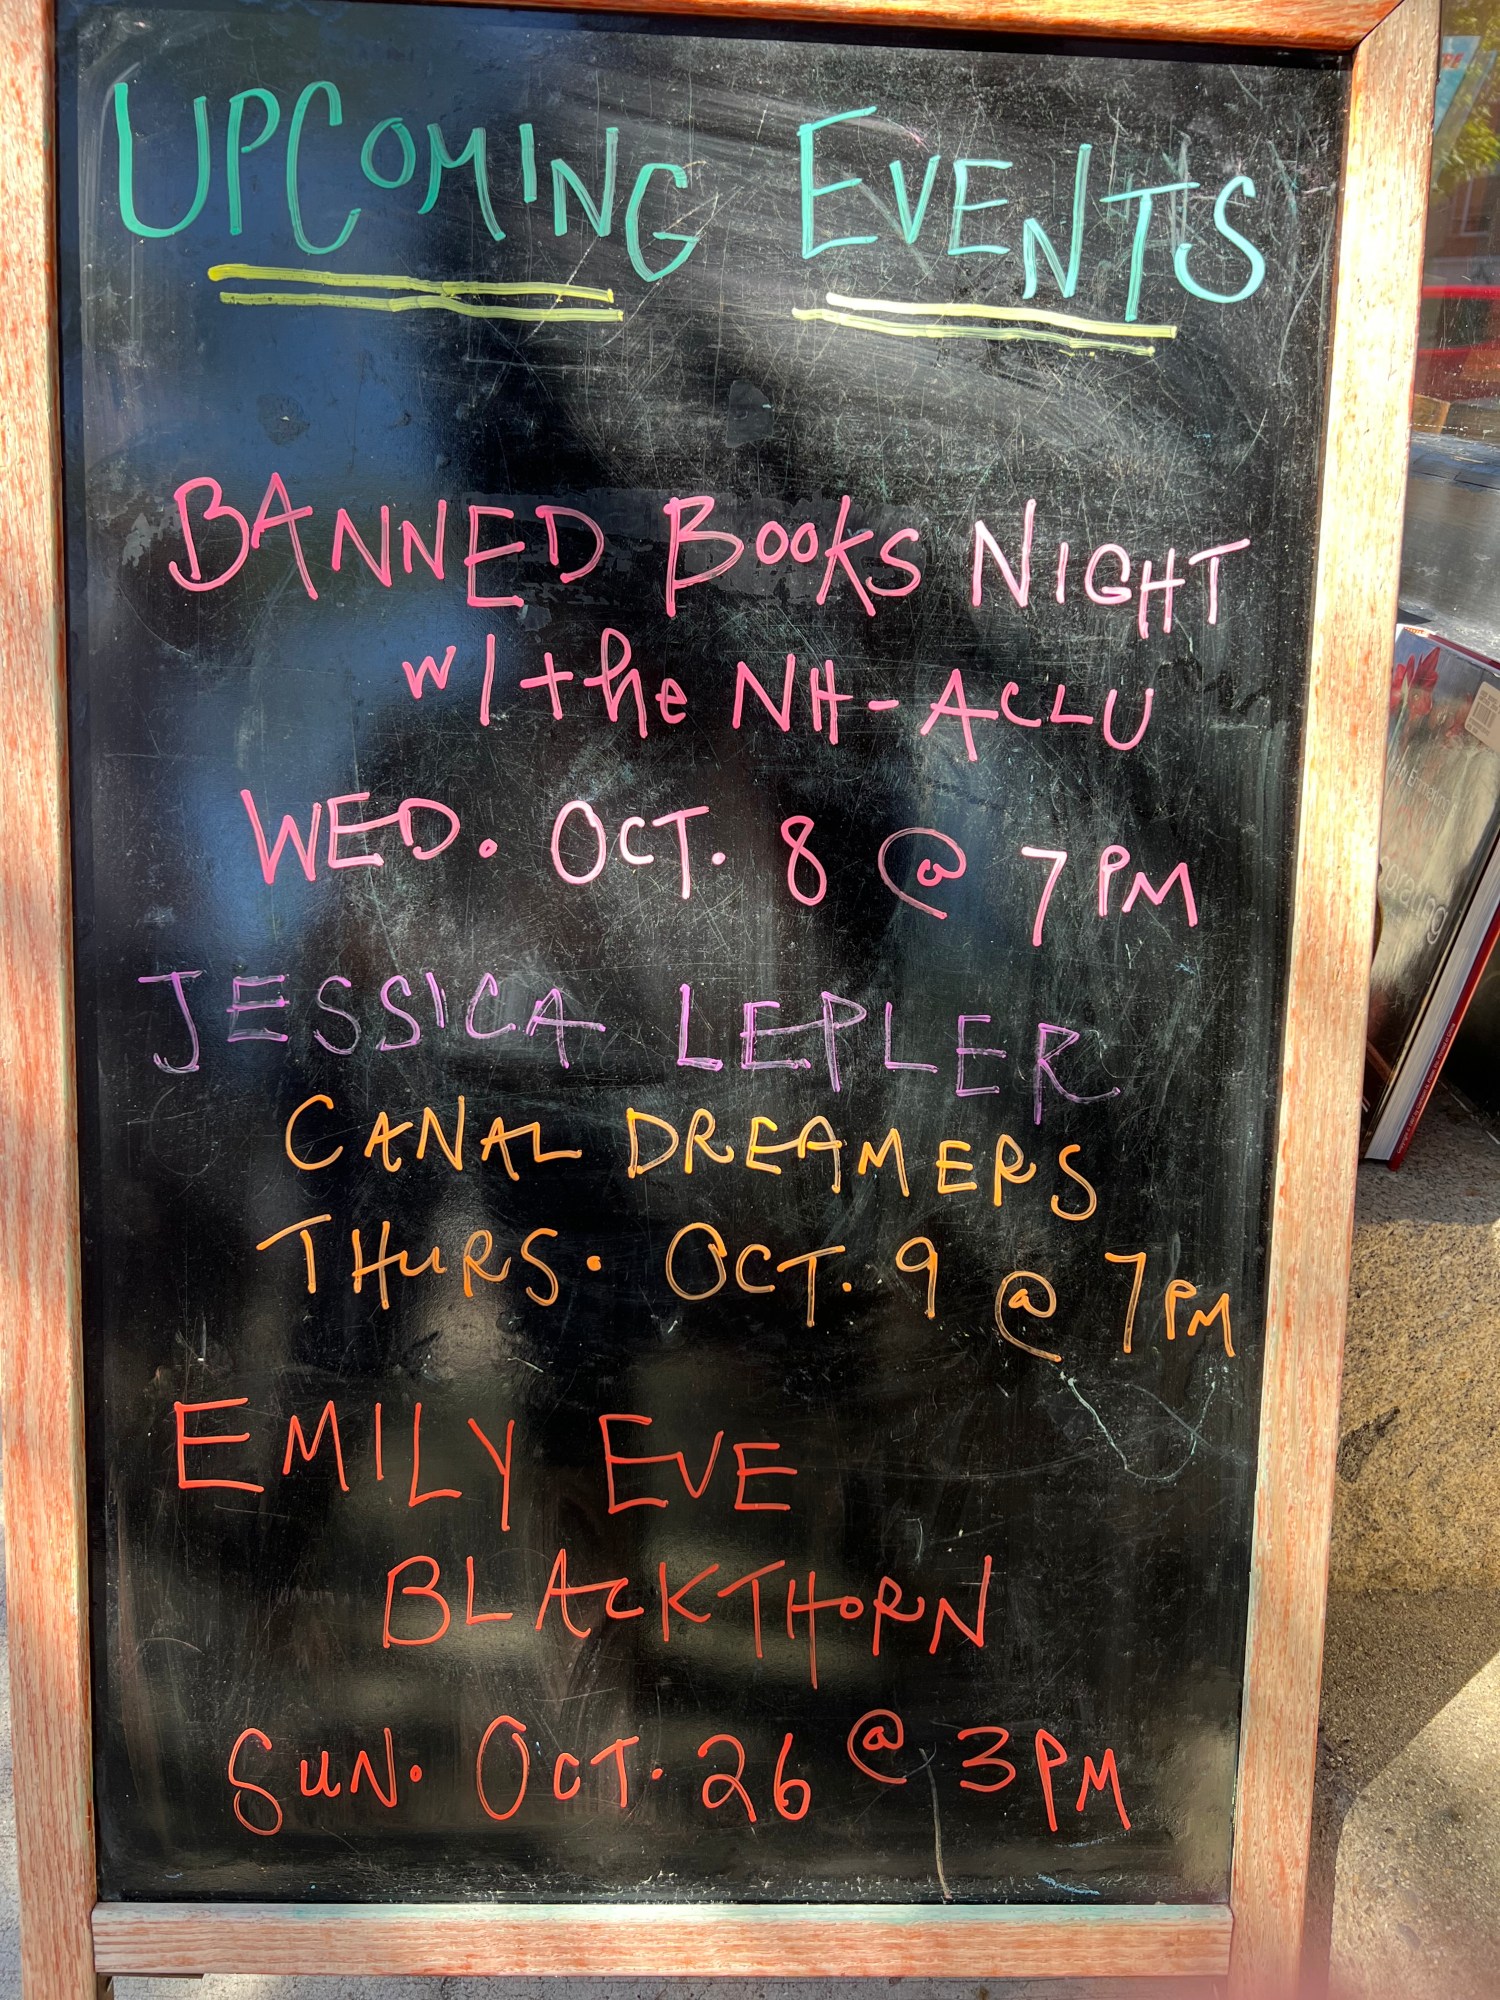 UPCOMING EVENTS
BANNED BOOKS NIGHT
w/ the NH-ACLU
WED. OCT. 8 @ 7PM
JESSICA LEPLER
CANAL DREAMERS
THURS. OCT. 9 @ 7PM
EMILY EVE
BLACKTHORN
SUN. OCT. 26 @ 3PM